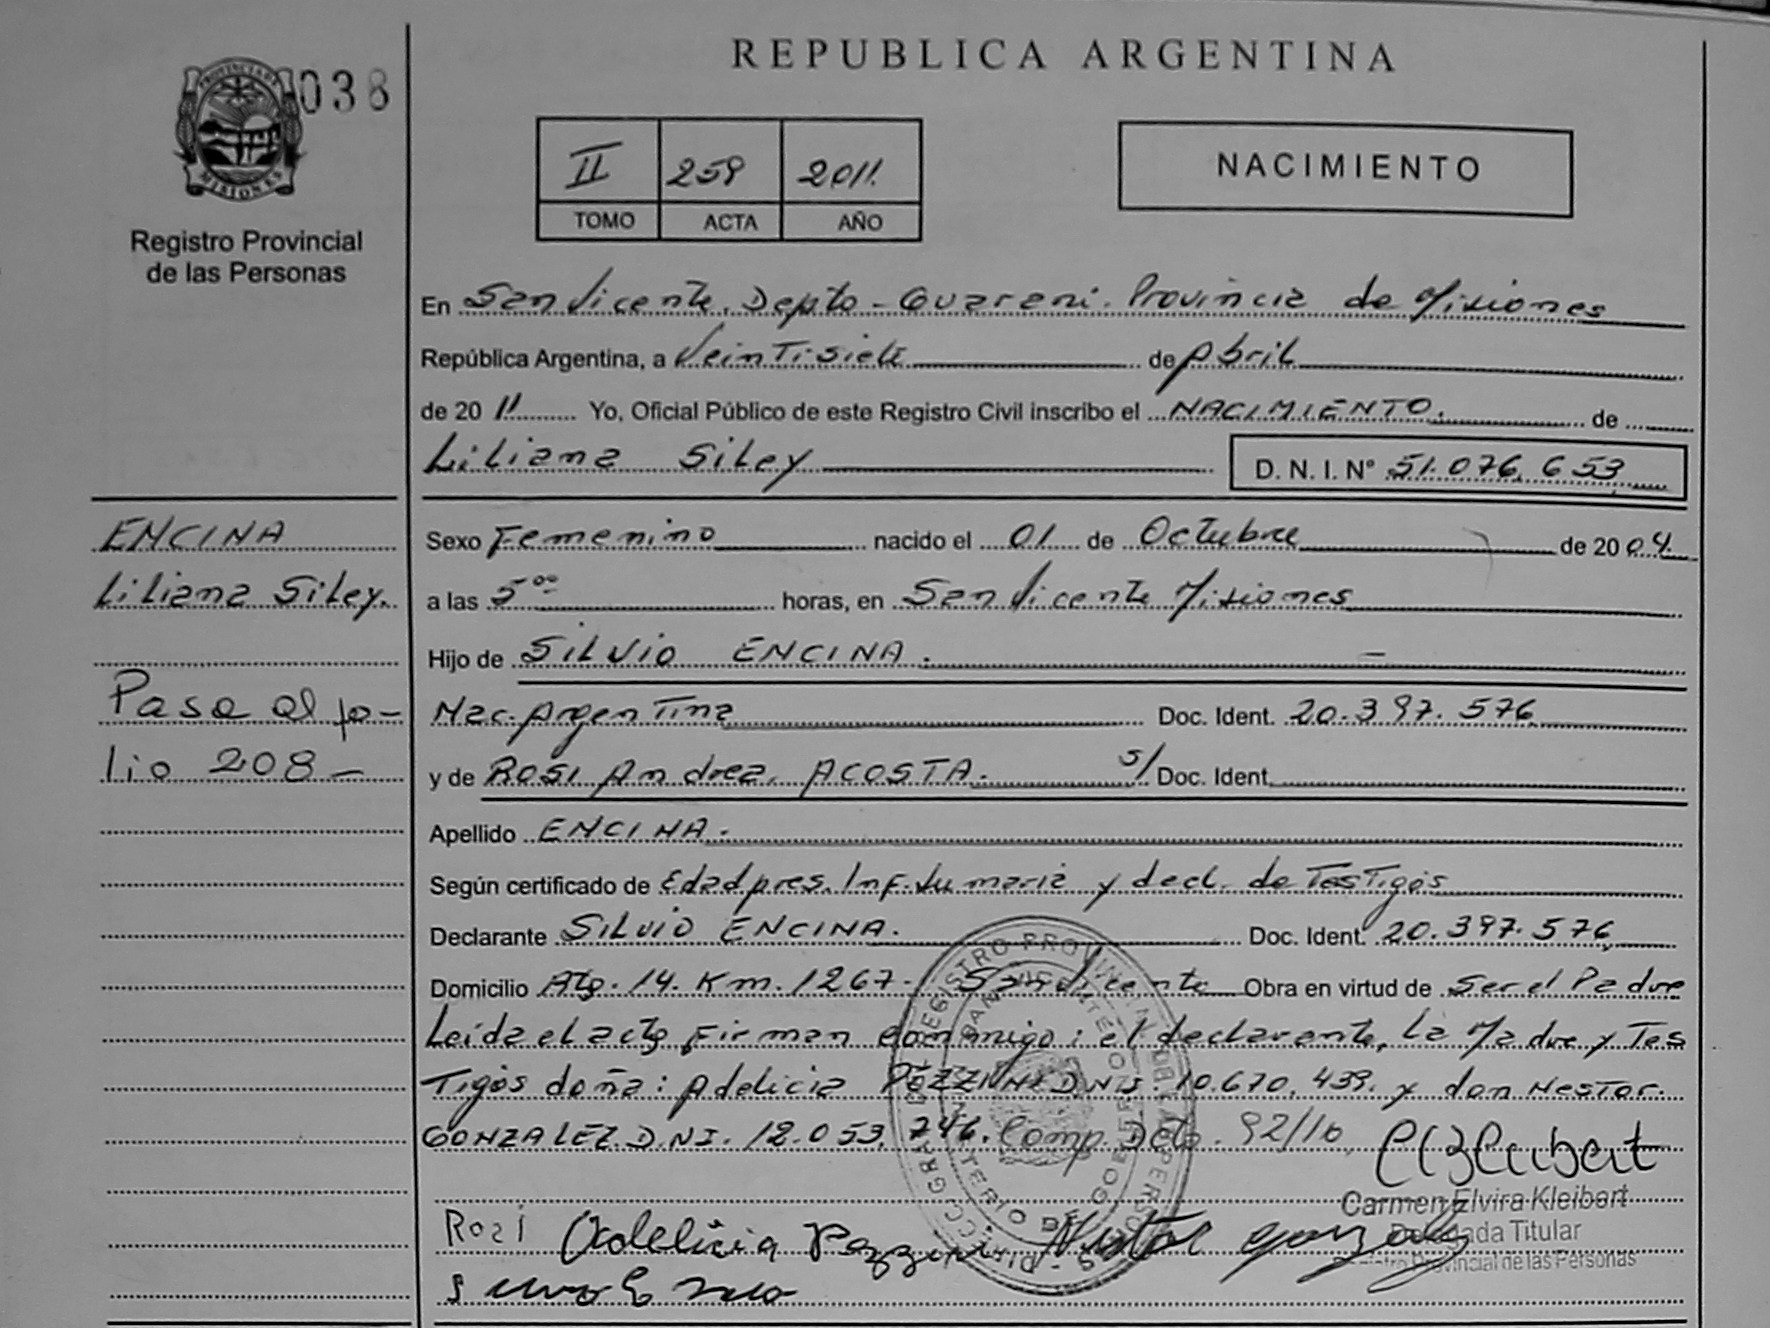 REPUBLICA ARGENTINA
PROVINCIA DE
MISIONES
038
Registro Provincial
de las Personas
II 259 2011.
TOMO ACTA AÑO
NACIMIENTO
En San Vicente, Depto - Guarani. Provincia de Misiones
República Argentina, a Veintisiete de Abril
de 2011 Yo, Oficial Público de este Registro Civil inscribo el NACIMIENTO. de
Liliana Siley D. N. I. Nº 51.076.653
ENCINA
Liliana Siley.
Pasa al fo-
lio 208 -
Sexo Femenino nacido el 01 de Octubre de 2004
a las 5 00 horas, en San Vicente Misiones
Hijo de SILVIO ENCINA. -
Nac. Argentina Doc. Ident. 20.397.576
y de ROSI Andrea ACOSTA. s/ Doc. Ident.
Apellido ENCINA.
Según certificado de Edad pres. Inf. Sumaria y decl. de Testigos
Declarante SILVIO ENCINA. Doc. Ident. 20.397.576
Domicilio Km. 1267. San Vicente Obra en virtud de Ser el Padre
Leida el acta Firman conmigo: el declarante, La Madre y Tes
Tigos doña: Adelicia POZZINI D.N.I. 10.670.439. y don Nestor.
GONZALEZ. D.N.I. 12.053.746. Comp. Dcto. 92/10
Carmen Elvira Kleibert
Delegada Titular
Registro Provincial de las Personas
Rozi Adelicia Pozzini Nestor Gonzalez